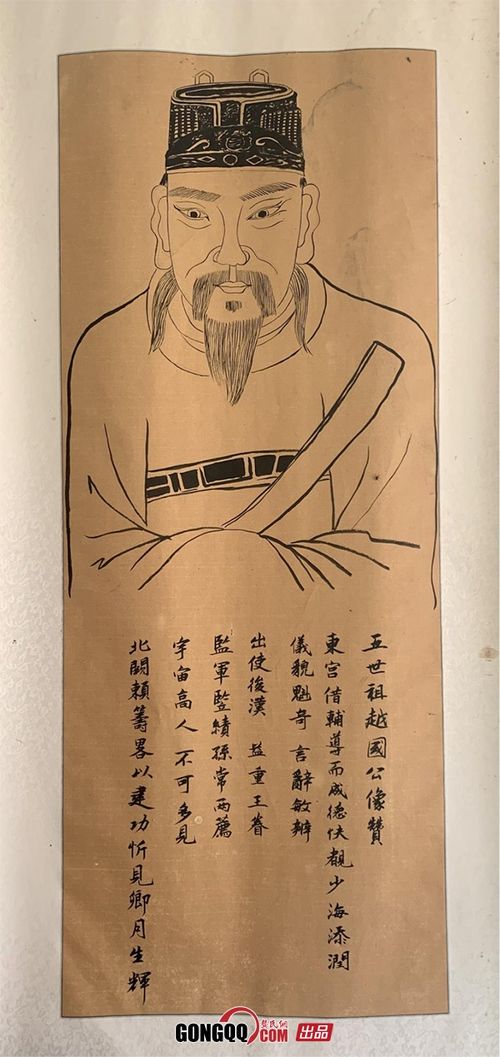 五世祖越國公像贊
東宮借輔導而成德佇覩少海添潤
儀貌魁奇 言辭敏辯
出使後漢 益重王眷
監軍監績孫常兩薦
宇宙高人 不可多見
北闕賴籌畧以建功忻見卿月生輝
GONGQQ.COM
龔氏網
出品